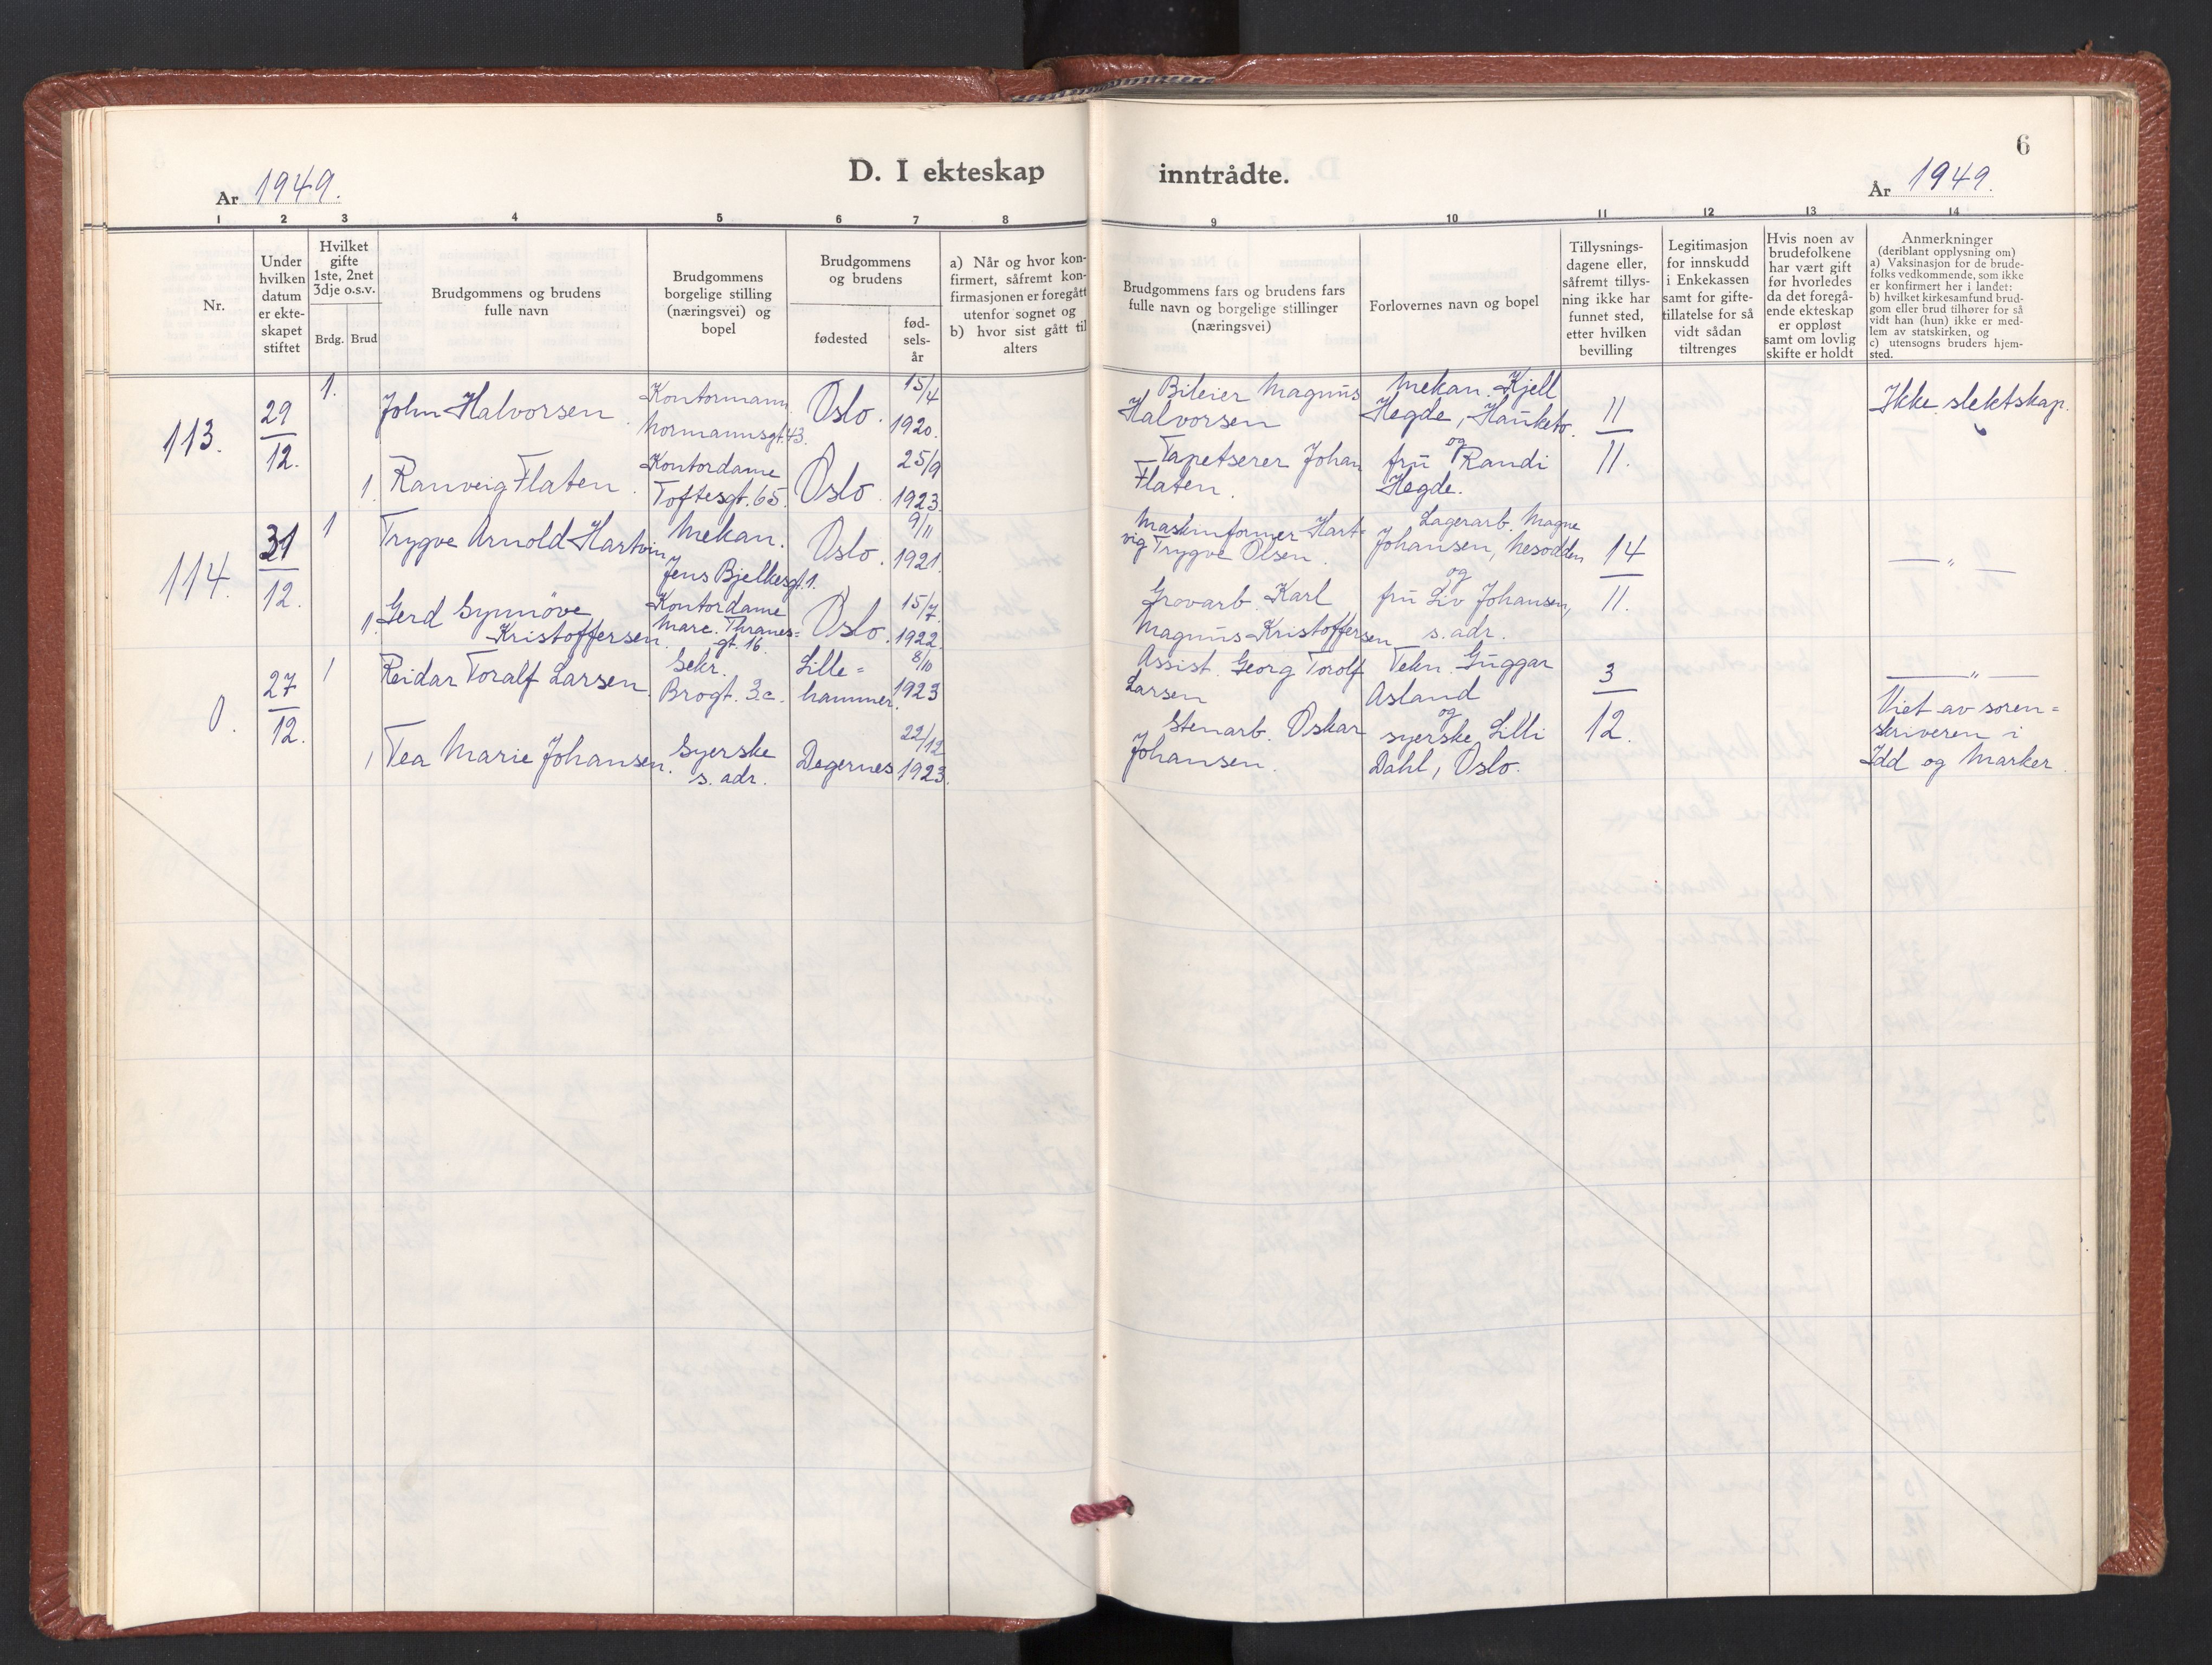 6
D. I ekteskap inntrådte.
År 1949.
År 1949.
1 2 3 4 5 6 7 8 9 10 11 12 13 14
Nr.
Under
hvilken
datum
er ekte-
skapet
stiftet
Hvilket
gifte
1ste, 2net
3dje o.s.v.
Brdg. Brud
Brudgommens og brudens
fulle navn
Brudgommens
borgelige stilling
(næringsvei) og
bopel
Brudgommens
og brudens
fødested
fød-
sels-
år
a) Når og hvor kon-
firmert, såfremt kon-
firmasjonen er foregått
utenfor sognet og
b) hvor sist gått til
alters
Brudgommens fars og brudens fars
fulle navn og borgelige stillinger
(næringsvei)
Forlovernes navn og bopel
Tillysnings-
dagene eller,
såfremt tillys-
ning ikke har
funnet sted,
etter hvilken
bevilling
Legitimasjon
for innskudd
i Enkekassen
samt for gifte-
tillatelse for så
vidt sådan
tiltrenges
Hvis noen av
brudefolkene
har vært gift
før hvorledes
da det foregå-
ende ekteskap
er oppløst
samt om lovlig
skifte er holdt
Anmerkninger
(deriblant opplysning om)
a) Vaksinasjon for de brude-
folks vedkommende, som ikke
er konfirmert her i landet:
b) hvilket kirkesamfund brud-
gom eller brud tilhører for så
vidt han (hun) ikke er med-
lem av statskirken, og
c) utensogns bruders hjem-
sted.
113.
29/12.
1.
John Halvorsen
Kontormann
Normannsgt. 43.
Oslo.
15/4
1920.
Bileier Magnus
Halvorsen
Mekan. Kjell
Hegde, Hauketo.
og
11/11.
Ikke slektskap.
1.
Ranveig Flaten.
Kontordame
Toftesgt. 65.
Oslo.
25/9
1923.
Tapetserer Johan
Flaten.
fru Randi
Hegde.
114.
31/12.
1
Trygve Arnold Hartvin
Mekan.
Jens Bjelkesgt. 1.
Oslo.
9/11
1921.
Maskinformer Hart-
vig Trygve Olsen.
Lagerarb. Magne
Johansen, Nesodden
og
14/11.
— " —
1.
Gerd Synnøve
Kristoffersen.
Kontordame
Marc. Thranes=
gt. 16.
Oslo.
15/7
1922.
Grovarb. Karl
Magnus Kristoffersen
fru Liv Johansen,
s. adr.
0.
27/12.
1
Reidar Toralf Larsen.
Sekr.
Brogt. 3c.
Lille=
hammer.
8/10
1923
Assist. Georg Torolf
Larsen
Tekn. Guggar
Asland
og
3/12.
— " —
Viet av soren=
skriveren i
Idd og Marker
1
Tea Marie Johansen.
Syerske
s. adr.
Degernes
22/12
1923.
Stenarb. Oskar
Johansen.
syerske Lilli
Dahl, Oslo.